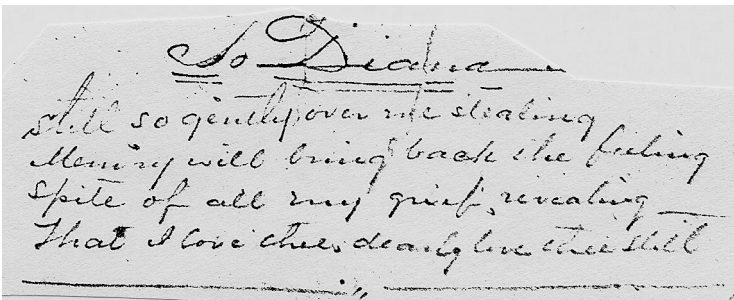 To Diana
Still so gently over me stealing
Memiry will bring back the feeling
Spite of all my grief revealing
That I love thee dearly love thee still